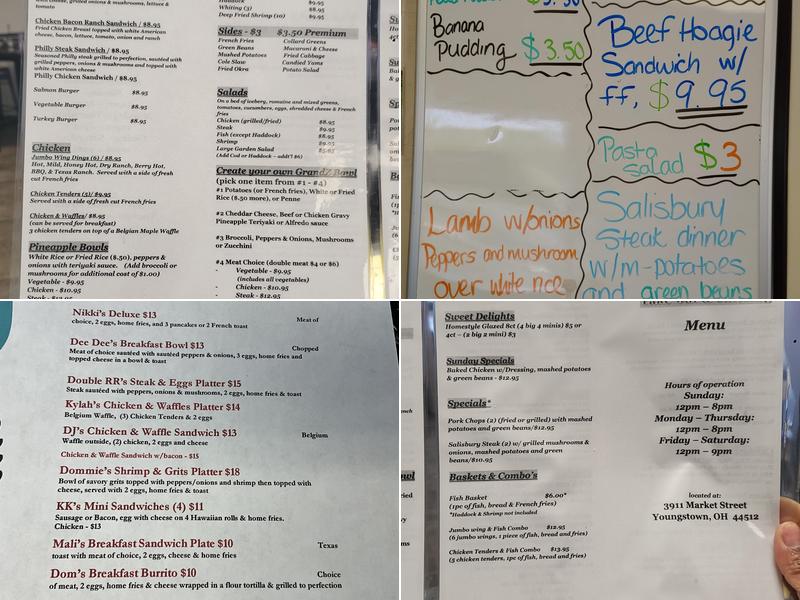 lettuce, onion &
tomato
Chicken Bacon Ranch Sandwich / $8.95
Fried Chicken Breast topped with white American
cheese, bacon, lettuce, tomato, onion and ranch
Philly Steak Sandwich / $8.95
Seasoned Philly steak grilled to perfection, sautéed with
grilled peppers, onions & mushrooms and topped with
white American cheese
Philly Chicken Sandwich / $8.95
Salmon Burger $8.95
Vegetable Burger $8.95
Turkey Burger $8.95
Chicken
Jumbo Wing Dings (6) / $8.95
Hot, Mild, Honey Hot, Dry Ranch, Berry Hot,
BBQ, & Texas Ranch. Served with a side of fresh
cut French fries
Chicken Tenders (5)/ $9.95
Served with a side of fresh cut French Fries
Chicken & Waffles/ $8.95
(can be served for breakfast)
3 chicken tenders on top of a Belgian Maple Waffle
Pineapple Bowls
White Rice or Fried Rice ($.50), peppers &
onions with teriyaki sauce. (Add broccoli or
mushrooms for additional cost of $1.00)
Vegetable - $9.95
Chicken - $10.95
Steak - $12.95
Haddock $9.95
Whiting (3) $8.95
Deep Fried Shrimp (10) $9.95
Sides - $3 $3.50 Premium
French Fries Collard Greens
Green Beans Macaroni & Cheese
Mashed Potatoes Fried Cabbage
Cole Slaw Candied Yams
Fried Okra Potato Salad
Salads
On a bed of iceberg, romaine and mixed greens,
tomatoes, cucumbers, eggs, shredded cheese & French
fries
Chicken (grilled/fried) $8.95
Steak $9.95
Fish (except Haddock) $8.95
Shrimp $9.95
Large Garden Salad $5.95
(Add Cod or Haddock – addt'l $6)
Create your own GrandZ Bowl
(pick one item from #1 - #4)
#1 Potatoes (or French fries), White or Fried
Rice ($.50 more), or Penne
#2 Cheddar Cheese, Beef or Chicken Gravy
Pineapple Teriyaki or Alfredo sauce
#3 Broccoli, Peppers & Onions, Mushrooms
or Zucchini
#4 Meat Choice (double meat $4 or $6)
- Vegetable - $9.95
(includes all vegetables)
- Chicken - $10.95
- Steak - $12.95
Banana
Pudding $3.50
Lamb w/onions
Peppers and mushroom
over white rice
Beef Hoagie
Sandwich w/
ff, $9.95
Pasta
salad $3
Salisbury
Steak dinner
w/m-potatoes
and green beans
Nikki's Deluxe $13 Meat of
choice, 2 eggs, home fries, and 3 pancakes or 2 French toast
Dee Dee's Breakfast Bowl $13 Chopped
Meat of choice sautéed with sautéed peppers & onions, 3 eggs, home fries and
topped cheese in a bowl & toast
Double RR's Steak & Eggs Platter $15
Steak sautéed with peppers, onions & mushrooms, 2 eggs, home fries & toast
Kylah's Chicken & Waffles Platter $14
Belgium Waffle, (3) Chicken Tenders & 2 eggs
DJ's Chicken & Waffle Sandwich $13 Belgium
Waffle outside, (2) chicken, 2 eggs and cheese
Chicken & Waffle Sandwich w/bacon - $15
Dommie's Shrimp & Grits Platter $18
Bowl of savory grits topped with peppers/onions and shrimp then topped with
cheese, served with 2 eggs, home fries & toast
KK's Mini Sandwiches (4) $11
Sausage or Bacon, egg with cheese on 4 Hawaiian rolls & home fries.
Chicken - $13
Mali's Breakfast Sandwich Plate $10 Texas
toast with meat of choice, 2 eggs, cheese & home fries
Dom's Breakfast Burrito $10 Choice
of meat, 2 eggs, home fries & cheese wrapped in a flour tortilla & grilled to perfection
Sweet Delights
Homestyle Glazed 8ct (4 big 4 minis) $5 or
4ct – (2 big 2 mini) $3
Sunday Specials
Baked Chicken w/Dressing, mashed potatoes
& green beans - $12.95
Specials*
Pork Chops (2) (fried or grilled) with mashed
potatoes and green beans/$12.95
Salisbury Steak (2) w/ grilled mushrooms &
onions, mashed potatoes and green
beans/$10.95
Baskets & Combo's
Fish Basket $6.00*
(1pc of fish, bread & French fries)
*Haddock & Shrimp not included
Jumbo wing & Fish Combo $12.95
(6 jumbo wings, 1 piece of fish, bread and fries)
Chicken Tenders & Fish Combo $13.95
(5 chicken tenders, 1pc of fish, bread and fries)
Menu
Hours of operation
Sunday:
12pm – 8pm
Monday – Thursday:
12pm – 8pm
Friday – Saturday:
12pm – 9pm
located at:
3911 Market Street
Youngstown, OH 44512